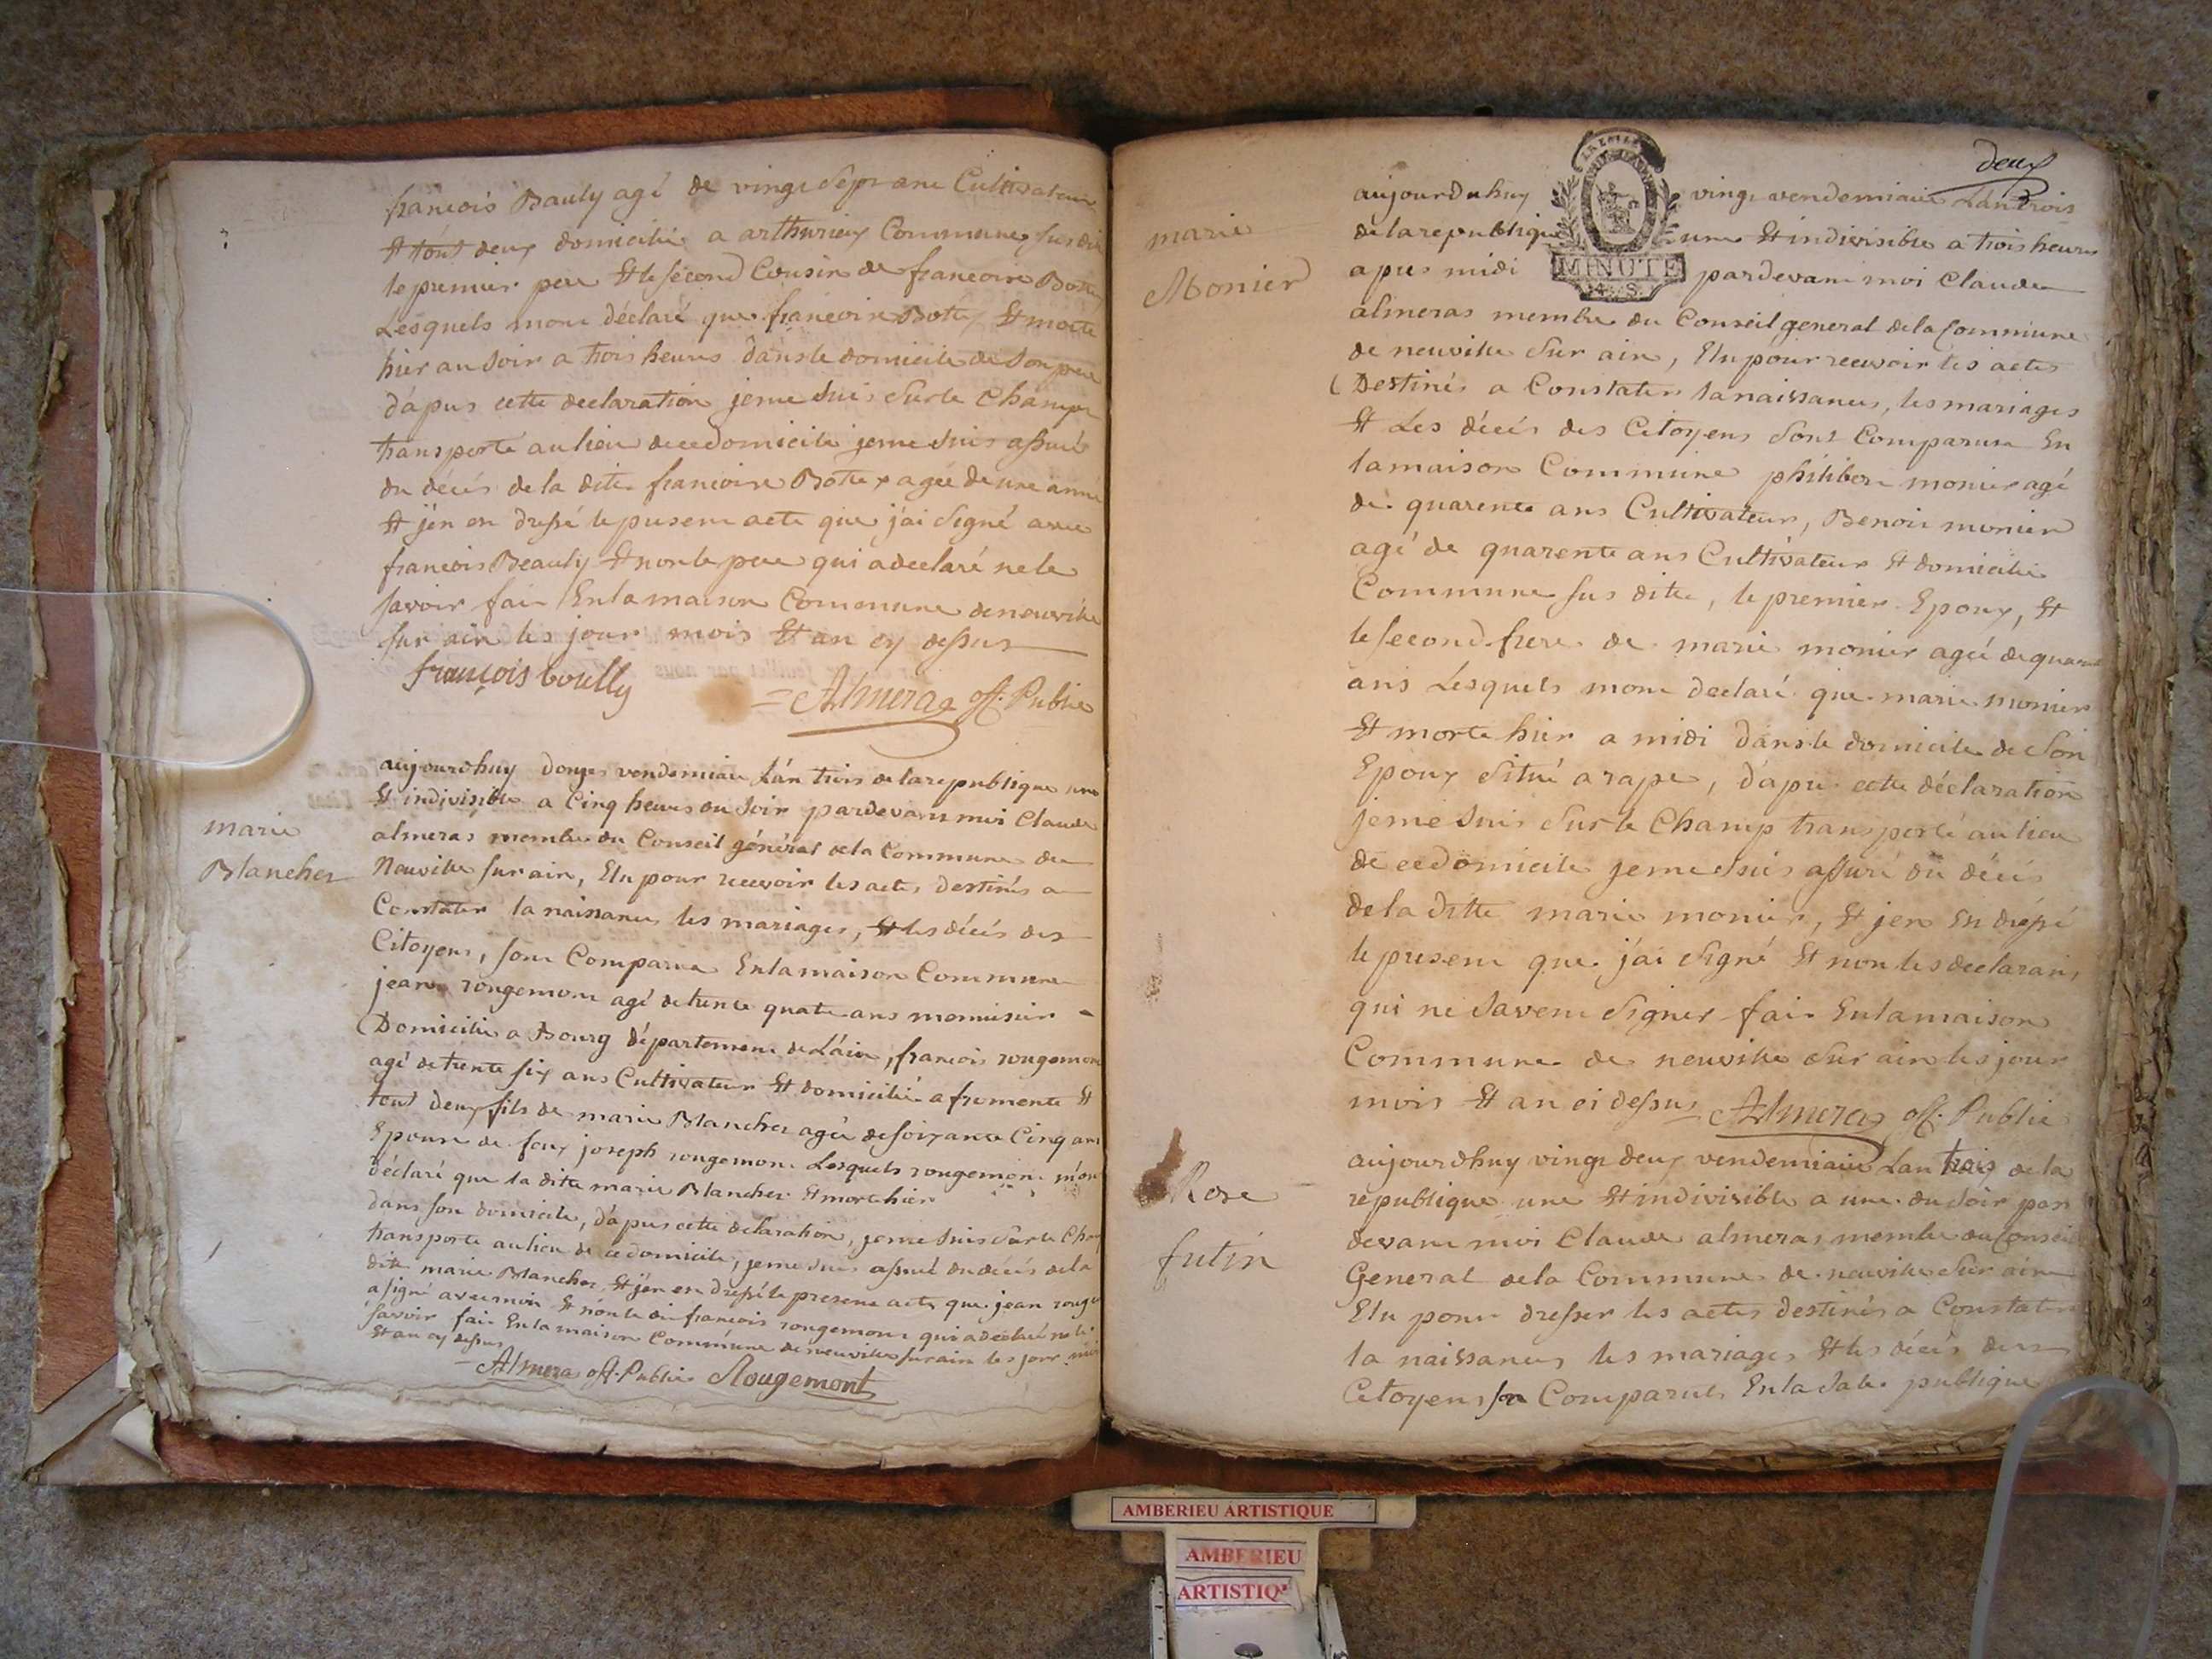 françois Bauly agé de vingt Sept ans Cultivateur
Et tout deux domicilié a arthurieux Commune susdit
le premier pere Et le second Cousin de francoise Bottex
Lesquels mont déclaré que francoise Bottex Et morte
hier au soir a trois heures dans le domicile de son pere
d'apres cette declaration je me suis sur le champ
transporté au lieu de ce domicile je me suis assuré
du décés de la dite francoise Bottex agée de une anné
Et j'en en dressé le present acte que j'ai signé avec
francois Beauly Et non le pere qui a declaré ne le
savoir fait En la maison Commune de neuville
sur ain les jour mois Et an cy dessus
françois boully
= Almeras off. Public
marie
Blancher
aujourdhuy douze vendemiaire l'an trois de la republique une
Et indivisible a Cinq heures du soir pardevant moi Claude
almeras membre du Conseil général de la Commune de
Neuville sur ain, Elu pour recevoir les actes destinés a
Constater la naissances les mariages, Et les décés des
Citoyens, sont Comparus En la maison Commune
jean rougemont agé de trente quatre ans menuisier
Domicilié a Bourg département de L'ain, francois rougemont
agé de trente six ans Cultivateur Et domicilié a fromente Et
tout deux fils de marie Blancher agée de soixante Cinq ans
Epouse de feux joseph rougemont Lesquels rougemont m'ont
déclaré que la dite marie Blancher Et morte hier
dans son domicile, d'apres cette declaration, je me suis sur le Champ
transporté au lieu de ce domicile, je me suis assuré du décés de la
dite marie Blancher, Et j'en en dressé le present acte que jean rouge
a signé avec moi Et non le dit francois rougemont qui a declaré ne le
savoir fait En la maison Commune de neuville sur ain les jour mois
Et an cy dessus
= Almeras off. Public Rougemont
deux
marie
Monier
aujourduhuy vingt vendemiaire Lan trois
de la republique une Et indivisible a trois heures
apres midi MINUTE pardevant moi Claude
almeras membre du Conseil general de la Commune
de neuville sur ain, Elu pour recevoir les actes
Destinés a Constater la naissances, les mariages
Et Les décés des Citoyens sont Comparus En
la maison Commune philibert monier agé
de quarente ans Cultivateur, Benoit monier
agé de quarente ans Cultivateur Et domicilié
Commune sus dite, le premier Epoux, Et
le second frere de marie monier agée de quarante
ans Lesquels mont declaré que marie monier
Et morte hier a midi dans le domicile de son
Epoux situé a rape, d'apres cette déclaration
je me suis sur le Champ transporté au lieu
de ce domicile je me suis assuré du décés
de la ditte marie monier, Et jen En dréssé
le present que j'ai signé Et non les declarans
qui ne savent signer fait En la maison
Commune de neuville sur ain les jour
mois Et an ci dessus Almeras off. Public
Rose
futin
aujourdhuy vingt deux vendemiaire Lan trois de la
republique une Et indivisible a une du soir par
devant moi Claude almeras membre du Conseil
General de la Commune de neuville sur ain
Elu pour dresser les actes destinés a Constater
la naissances les mariages Et les décés des
Citoyens son Comparus En la sale publique
AMBERIEU ARTISTIQUE
AMBERIEU
ARTISTIQ